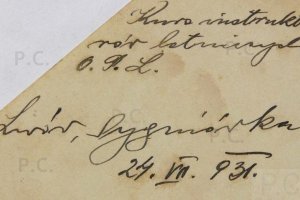 Kurs instrukt
rów lotniczych
O. P. L.
Lwów, Cygniówka
24. VII. 931.
P.C.
P.C.
P.C.
P.C.
P.C.